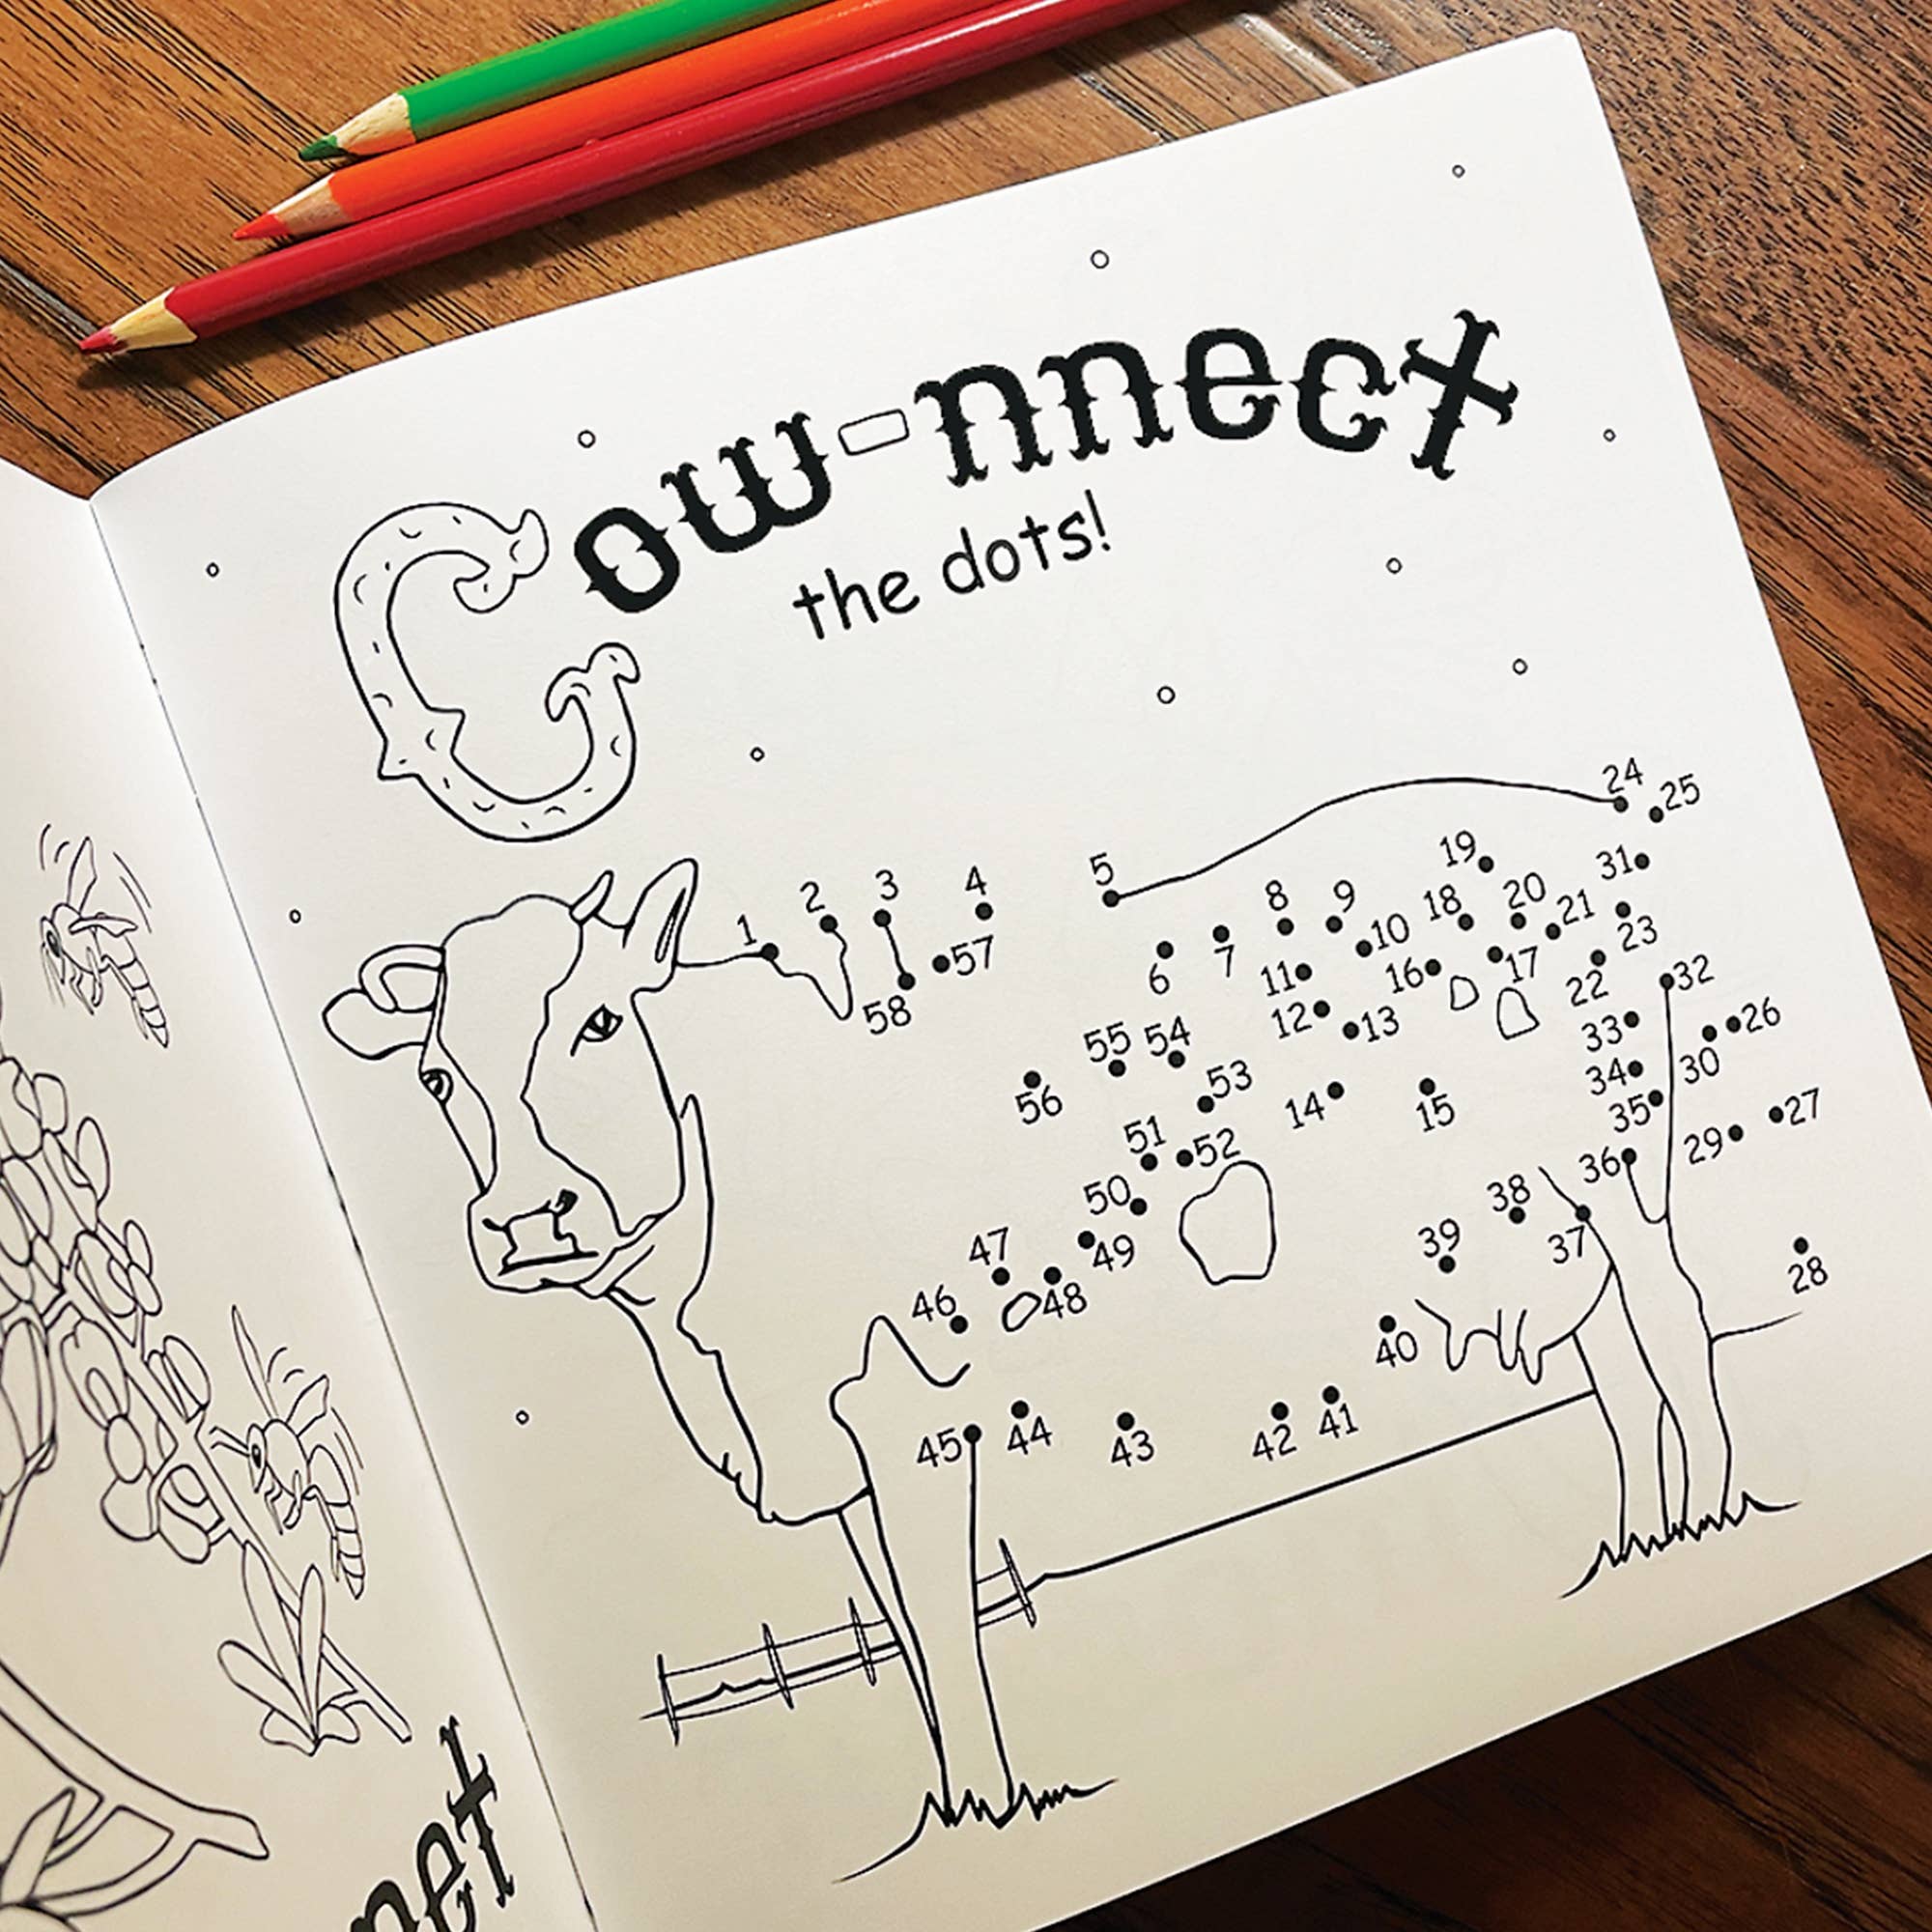 Cow-nnect
the dots!
24
25
19
31
5
4
3
2
8
9
20
18
21
1
10
23
57
7
6
11
16
17
22
32
58
12
13
33
26
55
54
34
30
53
56
14
15
35
27
51
52
29
36
50
38
47
49
39
37
46
48
28
40
45
44
43
42
41
net